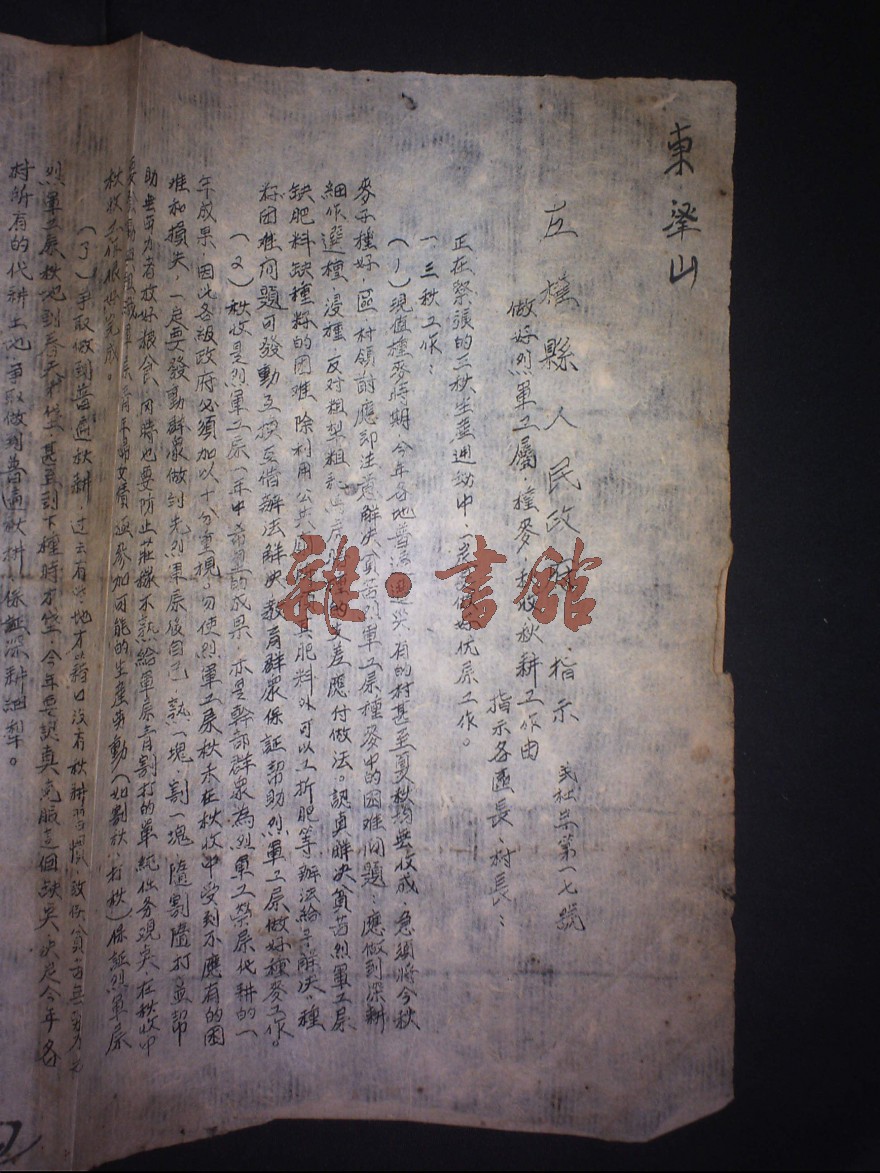 東 山
縣人民政府 指示 第一七號
做好烈軍工屬·種麥·秋收秋耕工作由
指示各區長·村長：
正在緊張的三秋生產運動中，一定要做好优屬工作。
一、三秋工作：
(1)現值種麥時期，今年各地普遍遭災，有的村甚至夏秋均無收成，急須將今秋
麥子種好，區村領討應即注意解决貧苦烈軍工屬種麥中的困难問題：應做到深耕
細作選種·浸種，反対粗犁粗 的支差應付做法。認真解决貧苦烈軍工屬
缺肥料缺種籽的困难，除利用公共 其肥料外可以工折肥等辦法給予解决。種
籽困难问題可發動互換互借辦法解决，教育群眾保証幇助烈軍工屬做好種麥工作。
(2)秋收是烈軍工屬一年中希望的成果，亦是幹部群衆為烈軍工榮屬代耕的一
年成果，因此各級政府必須加以十分重視，勿使烈軍工屬秋禾在秋收中受到不應有的困
难和損失，一定要發動群衆做到先烈軍屬後自己，熟一塊·割一塊，隨割隨打並幇
助無劳力者放好粮食，同時也要防止莊稼不熟給軍屬青割打的單純任务現奌，在秋收中
軍屬青年婦女積極參加可能的生產劳動(如割秋·打秋)保証烈軍屬
秋收工作很好完成。
(3)争取做到普遍秋耕，过去有些地方藉口沒有秋耕習慣，致使貧苦無劳力之
烈軍工屬秋地到春天才 甚至到下種時才 ，今年要認真克服這個缺奌，决定今年各
村所有的代耕土地，争取做到普遍秋耕，保証深耕細犁。
雜·書館